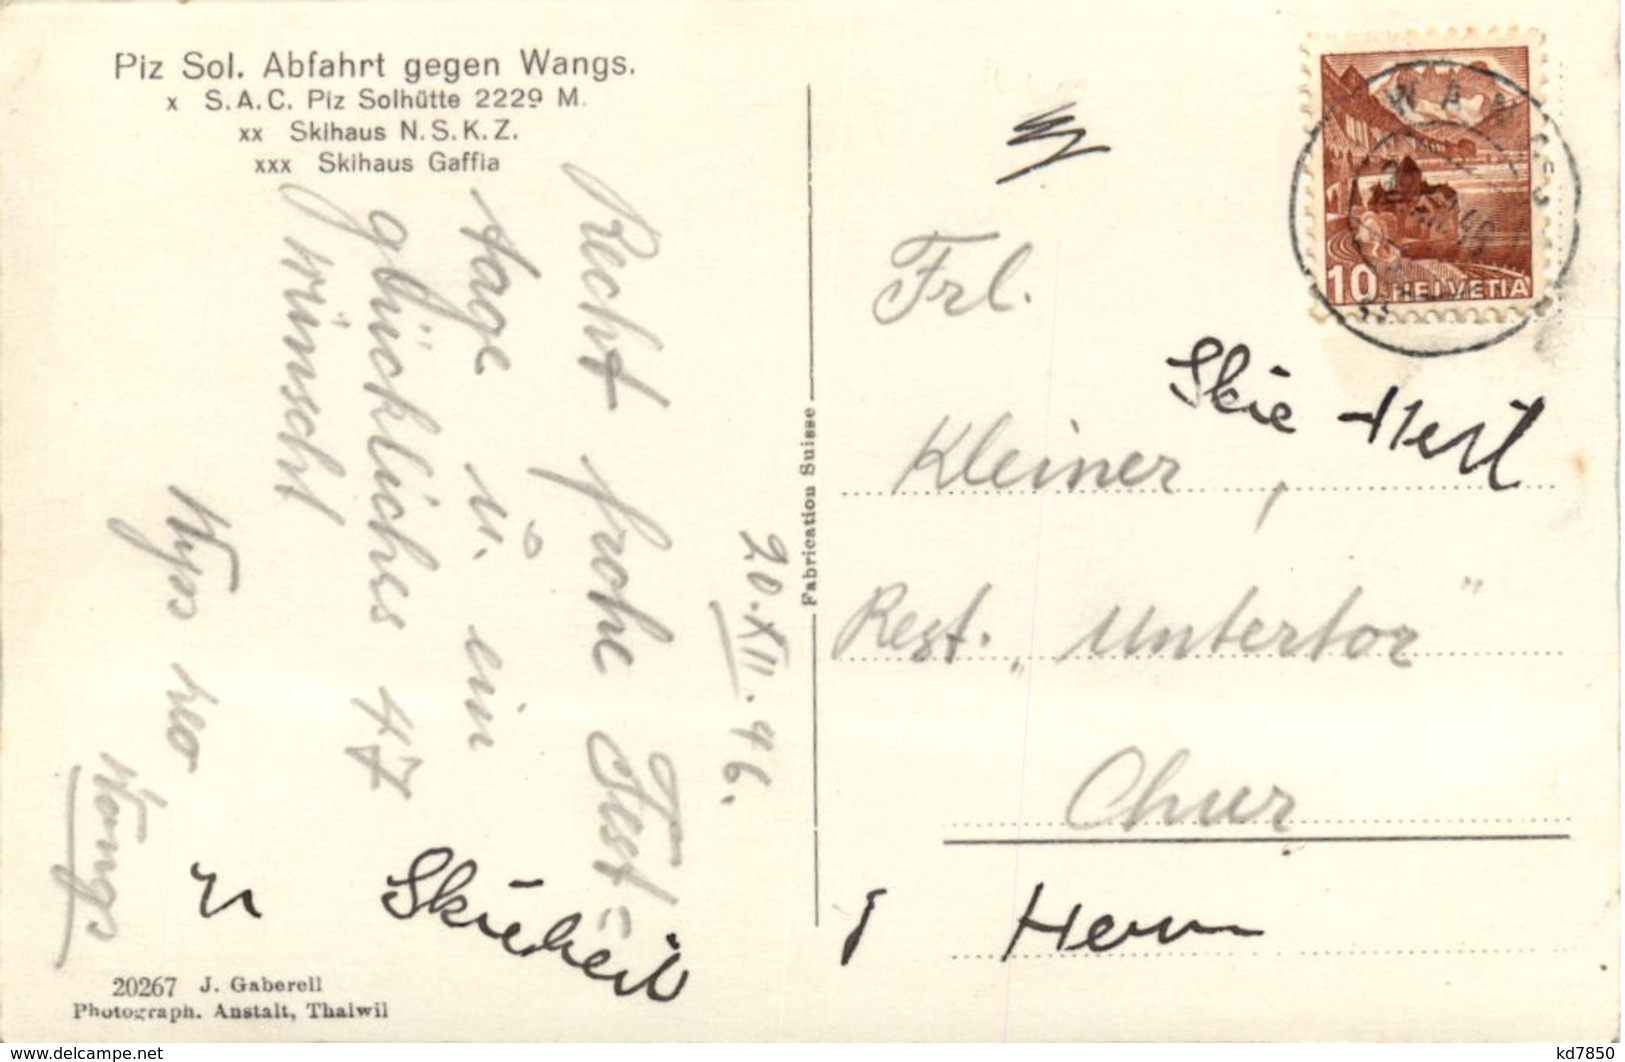 Piz Sol. Abfahrt gegen Wangs.
x S.A.C. Piz Solhütte 2229 M.
xx Skihaus N.S.K.Z.
xxx Skihaus Gaffia
20.XII.46.
Recht frohe Fest-
tage u. ein
glückliches 47
wünscht
Wyss Leo
Wangs
Skieheil
20267 J. Gaberell
Photograph. Anstalt, Thalwil
Fabrication Suisse
WANGS
10 HELVETIA
Frl.
Skie-Heil
Kleiner,
Rest. „Untertor"
Chur
Herrn
www.delcampe.net
kd7850